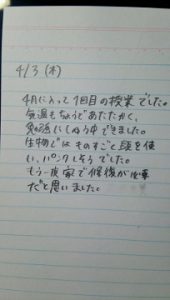 4/3 (木)
4月に入って1回目の授業でした。
気温もちょうどあたたかく、
勉強にしゅう中できました。
生物ではものすごく頭を使
い、パンクしそうでした。
もう一度家で修復が必要
だと思いました。